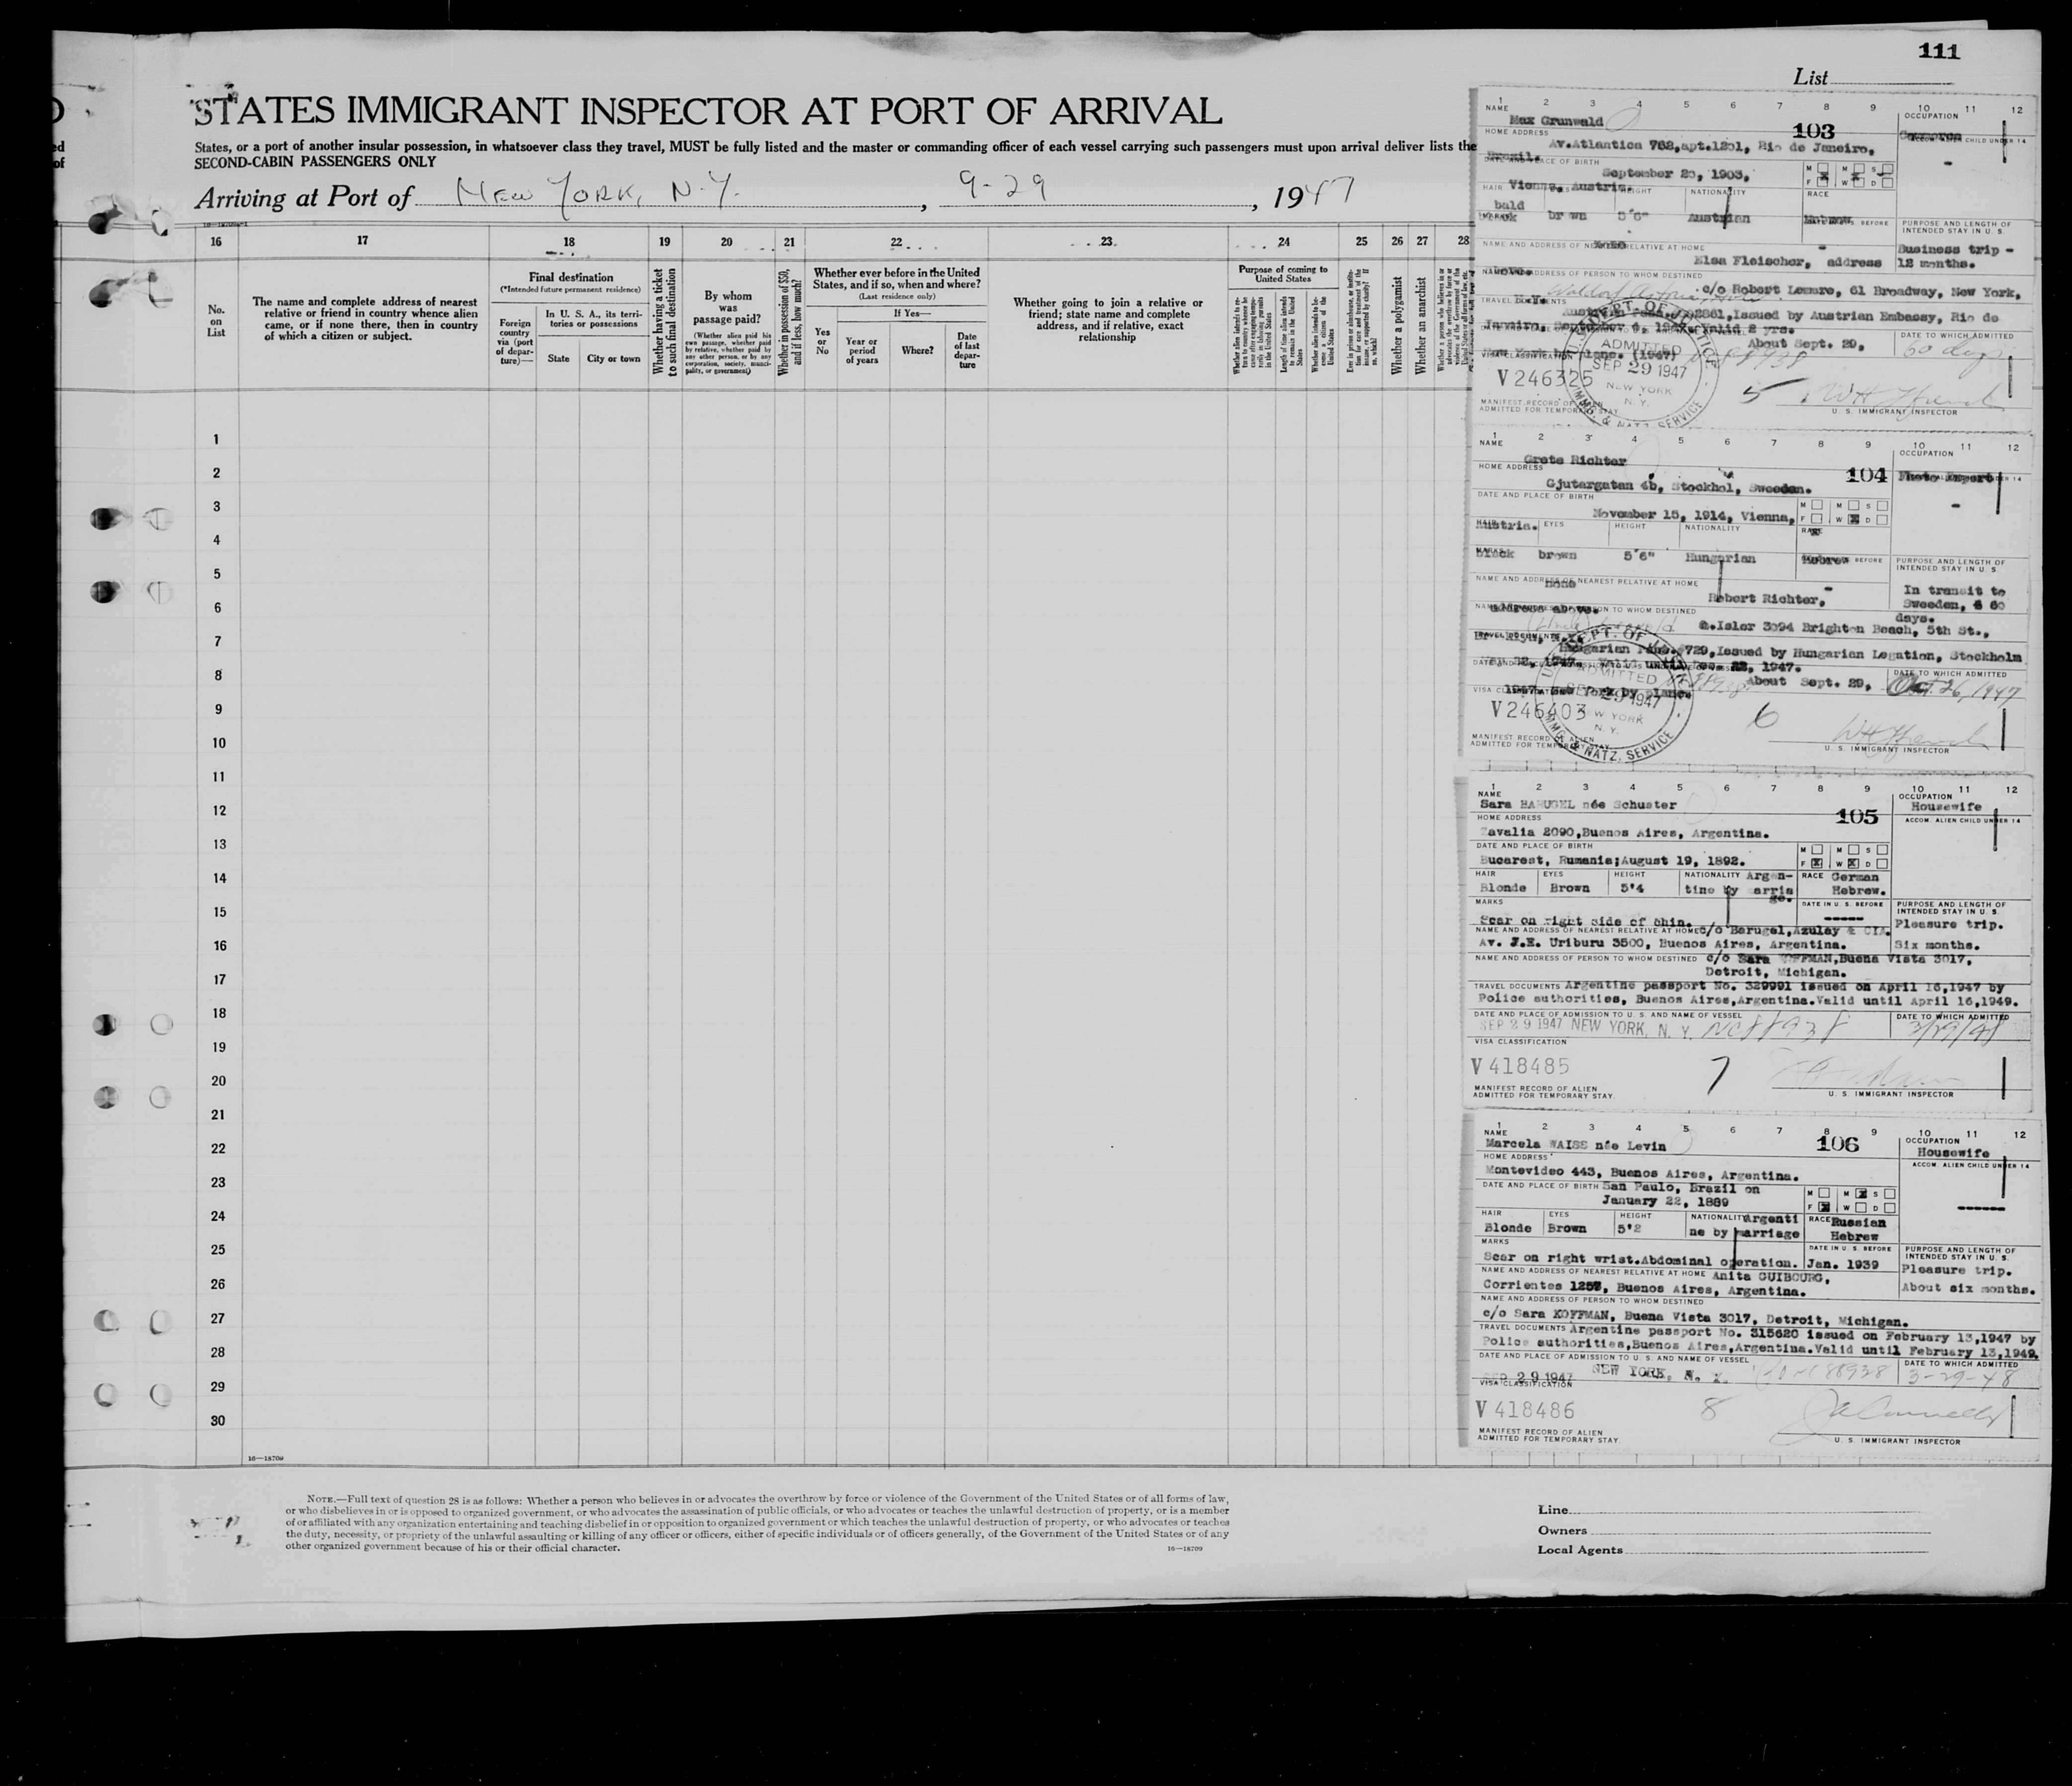 111
List
STATES IMMIGRANT INSPECTOR AT PORT OF ARRIVAL
States, or a port of another insular possession, in whatsoever class they travel, MUST be fully listed and the master or commanding officer of each vessel carrying such passengers must upon arrival deliver lists the
SECOND-CABIN PASSENGERS ONLY
Arriving at Port of NEW YORK, N.Y. , 9-29 , 1947
16 17 18 19 20 21 22 23 24 25 26 27 28
No. on List
The name and complete address of nearest
relative or friend in country whence alien
came, or if none there, then in country
of which a citizen or subject.
Final destination
(*Intended future permanent residence)
Foreign country via (port of departure)—
In U. S. A., its territories or possessions
State
City or town
Whether having a ticket to such final destination
By whom was passage paid?
(Whether alien paid his own passage, whether paid by relative, whether paid by any other person, or by any corporation, society, municipality, or government)
Whether in possession of $50, and if less, how much?
Whether ever before in the United
States, and if so, when and where?
(Last residence only)
Yes or No
If Yes—
Year or period of years
Where?
Date of last departure
Whether going to join a relative or
friend; state name and complete
address, and if relative, exact
relationship
Purpose of coming to United States
Length of time alien intends to remain in the United States
Whether alien intends to become a citizen of the United States
Whether a polygamist
Whether an anarchist
1
2
3
4
5
6
7
8
9
10
11
12
13
14
15
16
17
18
19
20
21
22
23
24
25
26
27
28
29
30
16—18709
NOTE.—Full text of question 28 is as follows: Whether a person who believes in or advocates the overthrow by force or violence of the Government of the United States or of all forms of law,
or who disbelieves in or is opposed to organized government, or who advocates the assassination of public officials, or who advocates or teaches the unlawful destruction of property, or is a member
of or affiliated with any organization entertaining and teaching disbelief in or opposition to organized government or which teaches the unlawful destruction of property, or who advocates or teaches
the duty, necessity, or propriety of the unlawful assaulting or killing of any officer or officers, either of specific individuals or of officers generally, of the Government of the United States or of any
other organized government because of his or their official character.
16—18709
Line
Owners
Local Agents
1 2 3 4 5 6 7 8 9 10 11 12
NAME Max Grunwald
103
OCCUPATION
HOME ADDRESS
Av.Atlantica 762,apt.1201, Rio de Janeiro,
Brazil.
September 23, 1903,
Vienna, Austria.
HAIR HEIGHT NATIONALITY RACE
bald brown 5'6" Austrian Hebrew
PURPOSE AND LENGTH OF INTENDED STAY IN U. S.
Business trip -
12 months.
NAME AND ADDRESS OF NEAREST RELATIVE AT HOME
Elsa Fleischer, address
above.
NAME AND ADDRESS OF PERSON TO WHOM DESTINED
c/o Robert Lemare, 61 Broadway, New York,
N.Y. Waldorf Astoria Hotel
TRAVEL DOCUMENTS
Issued by Austrian Embassy, Rio de
Janeiro, September 4, 1947. Valid 2 yrs.
About Sept. 29,
New York by plane. (1947)
DATE TO WHICH ADMITTED
60 days
U.S. DEPT. OF JUSTICE
ADMITTED
SEP 29 1947
NEW YORK
N. Y.
IMMG. & NATZ. SERVICE
V 246325
5
MANIFEST RECORD OF ALIEN
ADMITTED FOR TEMPORARY STAY
U. S. IMMIGRANT INSPECTOR
1 2 3 4 5 6 7 8 9 10 11 12
NAME Grete Richter
104
OCCUPATION
Photo Expert
HOME ADDRESS
Gjutargatan 4b, Stockhol, Sweeden.
DATE AND PLACE OF BIRTH
November 15, 1914, Vienna,
Austria.
EYES HEIGHT NATIONALITY RACE
black brown 5'6" Hungarian Hebrew
none
PURPOSE AND LENGTH OF INTENDED STAY IN U. S.
In transit to
Sweeden, 60
days.
NAME AND ADDRESS OF NEAREST RELATIVE AT HOME
Robert Richter,
address above.
NAME AND ADDRESS OF PERSON TO WHOM DESTINED
Isler 3094 Brighton Beach, 5th St.,
Brooklyn, N.Y.
TRAVEL DOCUMENTS
Hungarian Pass. 729,Issued by Hungarian Legation, Stockholm
1947.
About Sept. 29,
1947 New York by plane.
DATE TO WHICH ADMITTED
Oct. 26, 1947
DEPT. OF JUSTICE
ADMITTED
SEP 29 1947
NEW YORK
N. Y.
IMMG. & NATZ. SERVICE
V 246403
6
MANIFEST RECORD OF ALIEN
ADMITTED FOR TEMPORARY STAY
U. S. IMMIGRANT INSPECTOR
1 2 3 4 5 6 7 8 9 10 11 12
NAME
Sara BARUGEL née Schuster
105
OCCUPATION
Housewife
HOME ADDRESS
Zavalia 2090,Buenos Aires, Argentina.
ACCOM. ALIEN CHILD UNDER 14
DATE AND PLACE OF BIRTH
Bucarest, Rumania;August 19, 1892.
M M S
F X W X D
HAIR EYES HEIGHT NATIONALITY Argen- RACE German
Blonde Brown 5'4 tine by marria Hebrew.
ge.
MARKS
Scar on right side of chin.
DATE IN U. S. BEFORE
PURPOSE AND LENGTH OF INTENDED STAY IN U. S.
Pleasure trip.
Six months.
NAME AND ADDRESS OF NEAREST RELATIVE AT HOME c/o Barugel,Azulay & CIA.
Av. J.E. Uriburu 3500, Buenos Aires, Argentina.
NAME AND ADDRESS OF PERSON TO WHOM DESTINED c/o Sara KOFFMAN,Buena Vista 3017,
Detroit, Michigan.
TRAVEL DOCUMENTS Argentine passport No. 329991 issued on April 16,1947 by
Police authorities, Buenos Aires,Argentina.Valid until April 16,1949.
DATE AND PLACE OF ADMISSION TO U. S. AND NAME OF VESSEL
DATE TO WHICH ADMITTED
SEP 29 1947 NEW YORK, N. Y. NC88938
3/29/48
VISA CLASSIFICATION
V 418485
7
MANIFEST RECORD OF ALIEN
ADMITTED FOR TEMPORARY STAY.
U. S. IMMIGRANT INSPECTOR
1 2 3 4 5 6 7 8 9 10 11 12
NAME
Marcela WAISS née Levin
106
OCCUPATION
Housewife
HOME ADDRESS
Montevideo 443, Buenos Aires, Argentina.
ACCOM. ALIEN CHILD UNDER 14
DATE AND PLACE OF BIRTH San Paulo, Brazil on
January 22, 1889
M M X S
F X W D
HAIR EYES HEIGHT NATIONALITY Argenti RACE Russian
Blonde Brown 5'2 ne by marriage Hebrew
MARKS
Scar on right wrist.Abdominal operation.
DATE IN U. S. BEFORE
Jan. 1939
PURPOSE AND LENGTH OF INTENDED STAY IN U. S.
Pleasure trip.
About six months.
NAME AND ADDRESS OF NEAREST RELATIVE AT HOME Anita GUIBOURG,
Corrientes 1257, Buenos Aires, Argentina.
NAME AND ADDRESS OF PERSON TO WHOM DESTINED
c/o Sara KOFFMAN, Buena Vista 3017, Detroit, Michigan.
TRAVEL DOCUMENTS Argentine passport No. 315620 issued on February 13,1947 by
Police authorities,Buenos Aires,Argentina.Valid until February 13,1949.
DATE AND PLACE OF ADMISSION TO U. S. AND NAME OF VESSEL
DATE TO WHICH ADMITTED
SEP 29 1947 NEW YORK, N. Y. 88938
3-29-48
VISA CLASSIFICATION
V 418486
8
MANIFEST RECORD OF ALIEN
ADMITTED FOR TEMPORARY STAY.
U. S. IMMIGRANT INSPECTOR